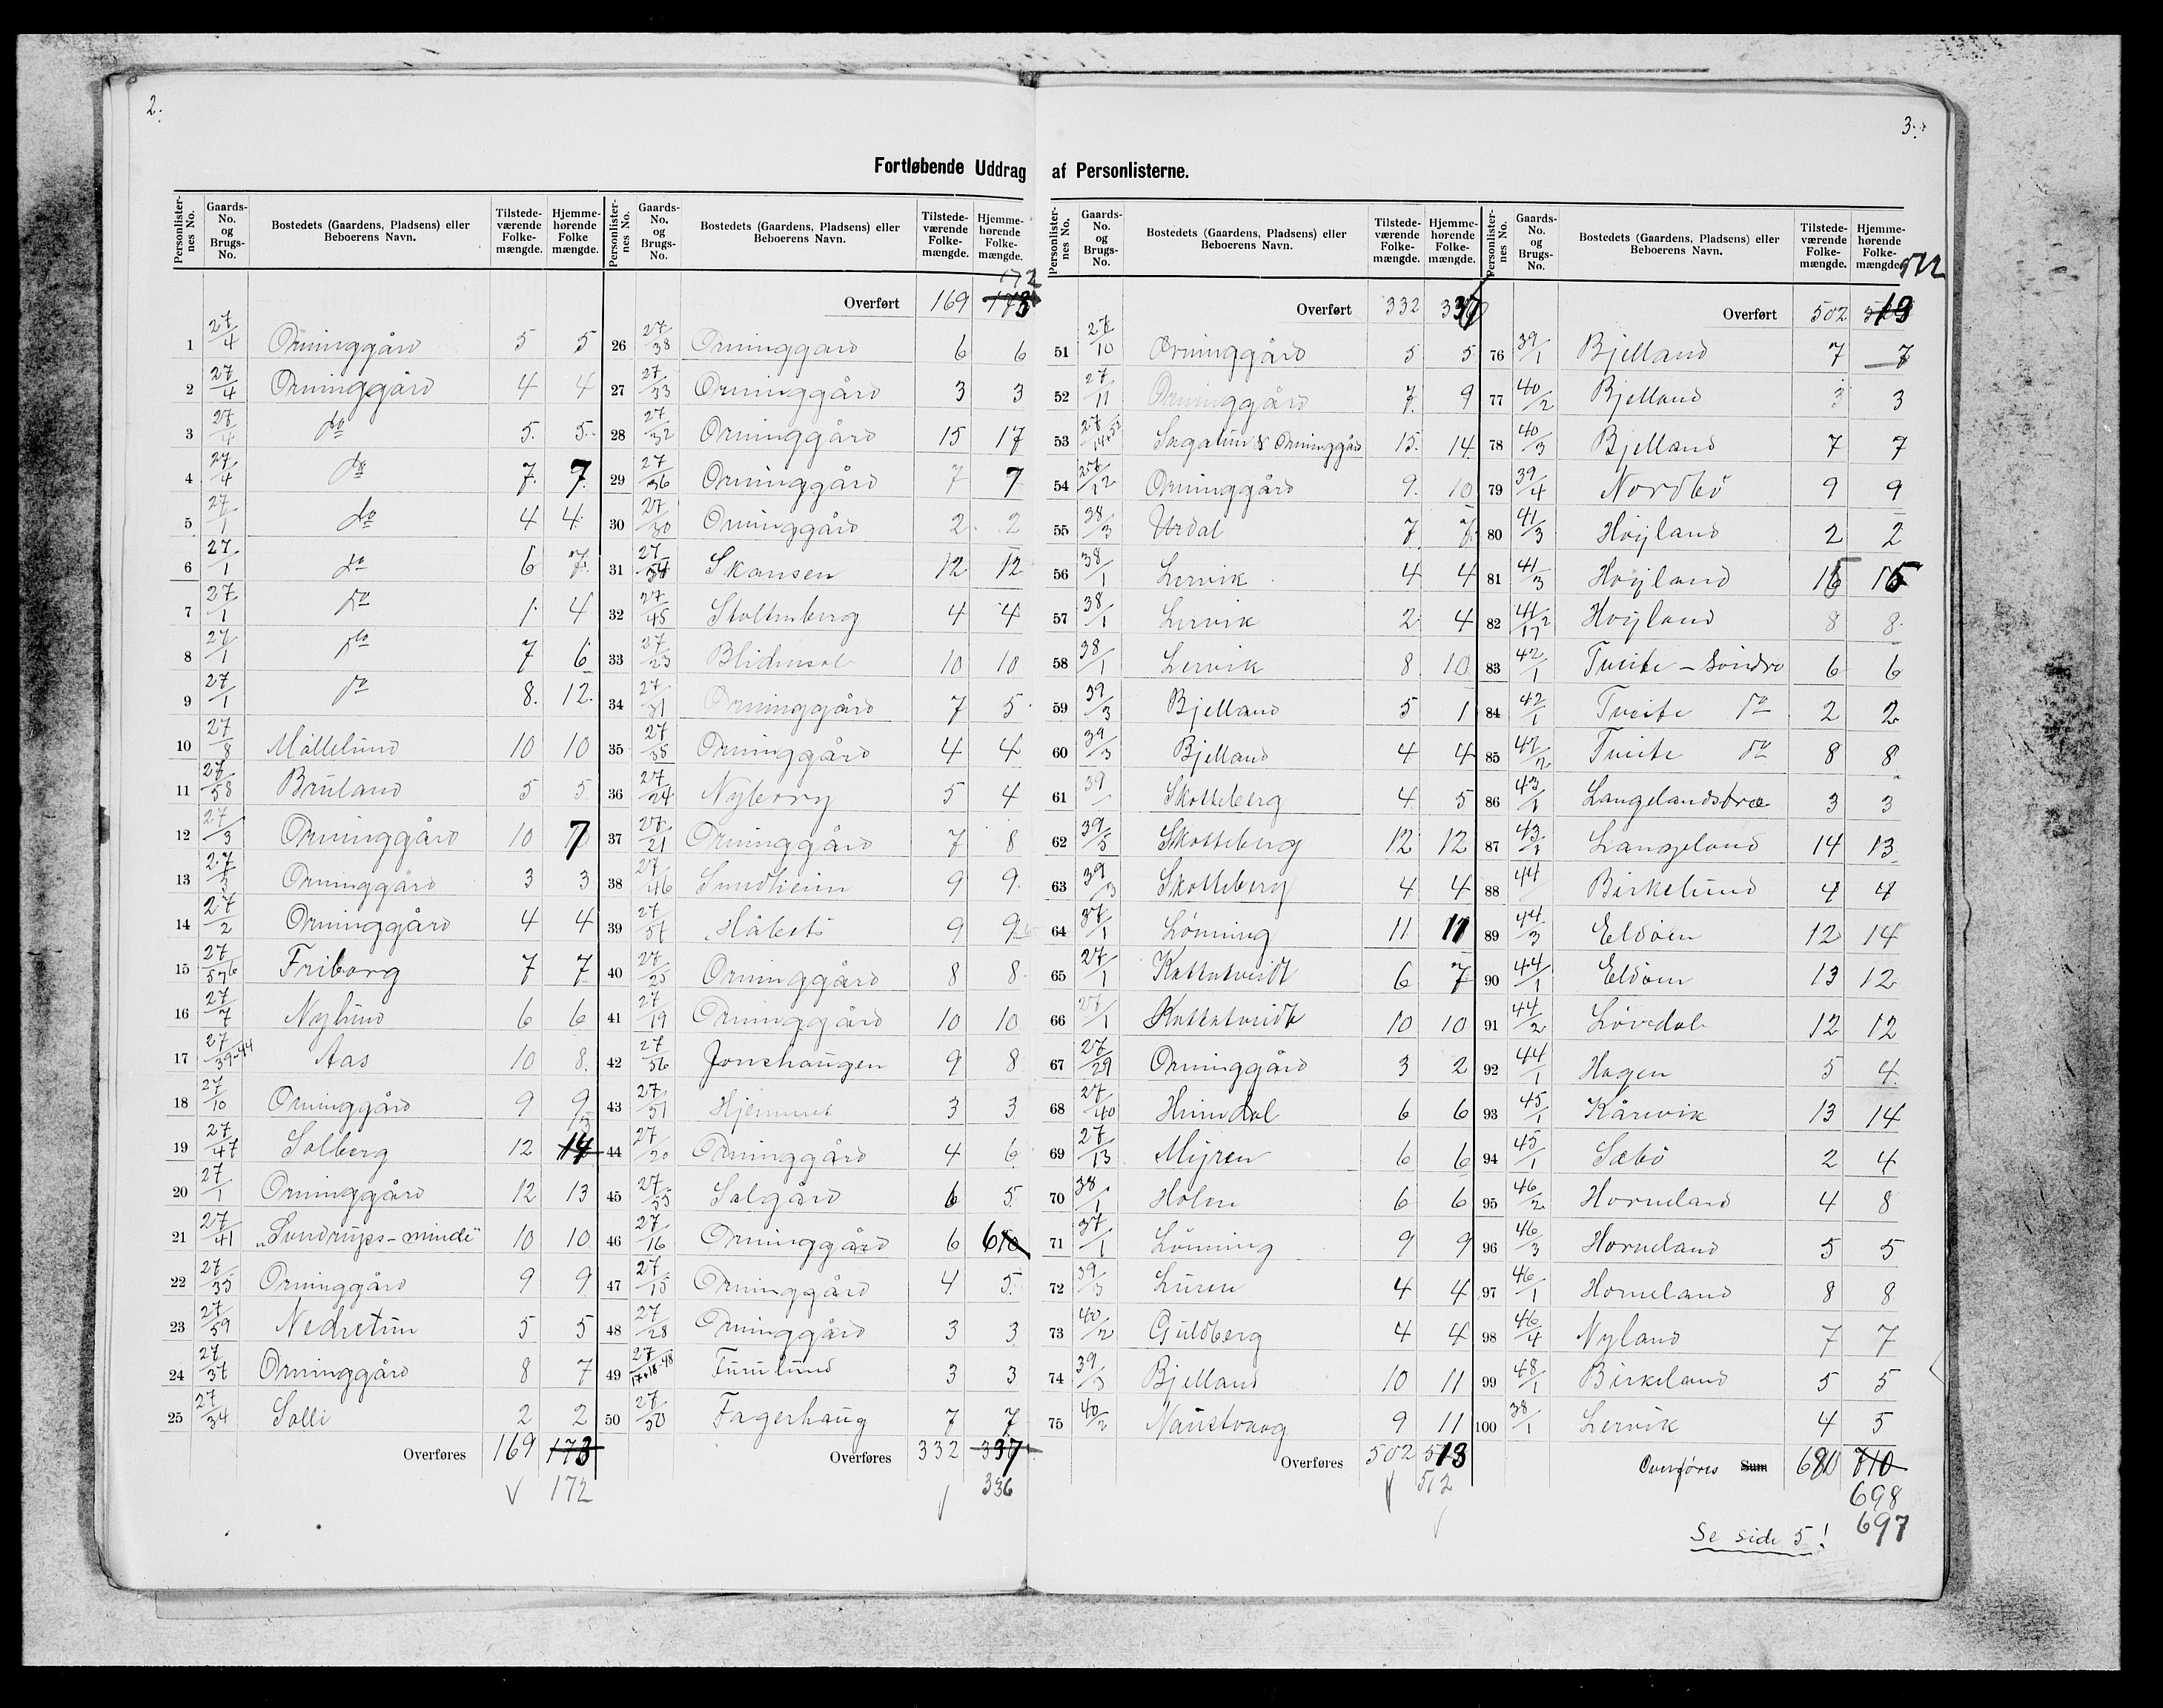 2.
3.
Fortløbende Uddrag af Personlisterne.
Personlister-nes No. Gaards-No. og Brugs-No. Bostedets (Gaardens, Pladsens) eller Beboerens Navn. Tilstede-værende Folke-mængde. Hjemme-hørende Folke mængde.
1 27/4 Orninggård 5 5
2 27/4 Orninggård 4 4
3 27/4 do 5. 5.
4 27/4 do 7. 7.
5 27/1 do 4 4
6 27/1 do 6 7.
7 27/1 do 1. 4
8 27/1 do 7 6
9 27/1 do 8. 12.
10 27/8 Möllelund 10 10
11 27/58 Bruland 5 5
12 27/3 Orninggård 10 7
13 27/3 Orninggård 3 3
14 27/2 Orninggård 4 4
15 27/57 Friborg 7 7
16 27/7 Nylund 6 6
17 27/39-44 Aas 10 8.
18 27/10 Orninggård 9 9
19 27/47 Solberg 12 14 13
20 27/1 Orninggård 12 13
21 27/41 „Sundrups-minde" 10 10
22 27/35 Orninggård 9 9
23 27/59 Nedretun 5 5
24 27/37 Orninggård 8 7
25 27/34 Solli 2 2
Overføres 169 173
172
Personlister-nes No. Gaards-No. og Brugs-No. Bostedets (Gaardens, Pladsens) eller Beboerens Navn. Tilstede-værende Folke-mængde. Hjemme-hørende Folke-mængde.
172
Overført 169 173
26 27/38 Orninggard 6 6
27 27/33 Orninggård 3 3
28 27/32 Orninggård 15 17
29 27/36 Orninggård 7 7
30 27/30 Orninggård 2 2
31 27/54 Skansen 12 12
32 27/45 Stoltenberg 4 4
33 27/23 Blidensol 10 10
34 27/31 Orninggård 7 5
35 27/38 Orninggård 4 4
36 27/24 Nyborg 5 4
37 27/21 Orninggård 7 8
38 27/46 Sundheim 9 9
39 27/57 Håbets 9 9
40 27/25 Orninggård 8 8
41 27/19 Orninggård 10 10
42 27/56 Jonshaugen 9 8
43 27/51 Hjemmet 3 3
44 27/20 Orninggård 4 6
45 27/55 Solgård 6 5
46 27/16 Orninggård 6 6 10
47 27/15 Orninggård 4 5
48 27/28 Orninggård 3 3
49 27/17+18-48 Furulund 3 3
50 27/50 Fagerhaug 7 7
Overføres 332 337
336
Personlister-nes No. Gaards-No. og Brugs-No. Bostedets (Gaardens, Pladsens) eller Beboerens Navn. Tilstede-værende Folke-mængde. Hjemme-hørende Folke-mængde.
Overført 332 337
51 27/10 Orninggård 5 5
52 27/11 Orninggård 7. 9
53 27/14+52 Sagatun & Orninggård 15. 14
54 27/12 Orninggård 9. 10
55 38/3 Urdal 7 7
56 38/1 Lervik 4 4
57 38/1 Lervik 2 4
58 38/1 Lervik 8 10
59 39/3 Bjelland 5 1
60 39/3 Bjelland 4 4
61 39 Skotteberg 4 5
62 39/5 Skotteberg 12 12
63 39/3 Skotteberg 4 4
64 37/1 Lönning 11 11
65 27/1 Kattatveidt 6 7
66 27/1 Kattatveidt 10 10
67 27/29 Orninggård 3 2
68 27/40 Heimdal 6 6
69 27/13 Myren 6 6
70 38/1 Holen 6 6
71 37/1 Lönning 9 9
72 39/3 Luren 4 4
73 40/2 Guldberg 4 4
74 39/3 Bjelland 10 11
75 40/2 Naustvaag 9 11
Overføres 502 513
512
Personlister-nes No. Gaards-No. og Brugs-No. Bostedets (Gaardens, Pladsens) eller Beboerens Navn. Tilstede-værende Folke-mængde. Hjemme-hørende Folke-mængde.
512
Overført 502 513
76 39/1 Bjelland 7 7
77 40/2 Bjelland 3 3
78 40/3 Bjelland 7 7
79 39/4 Nordbö 9 9
80 41/3 Höjland 2 2
81 41/3 Höjland 15 15
82 41/12 Höjland 8 8
83 42/1 Tveite - Söndre 6 6
84 42/1 Tveite do 2 2
85 42/2 Tveite do 8 8
86 43/1 Langelandstræ 3 3
87 43/1 Langeland 14 13
88 44 Birkelund 4 4
89 44/3 Eldöen 12 14
90 44/1 Eldöen 13 12
91 44/2 Lövedal 12 12
92 44/1 Hagen 5 4
93 45/1 Kårevik 13 14
94 45/1 Sæbö 2 4
95 46/2 Horneland 4 8
96 46/3 Horneland 5 5
97 46/1 Horneland 8 8
98 46/4 Nyland 7 7
99 48/1 Birkeland 5 5
100 38/1 Lervik 4 5
Overføres Sum 680 710
698
697
Se side 5!